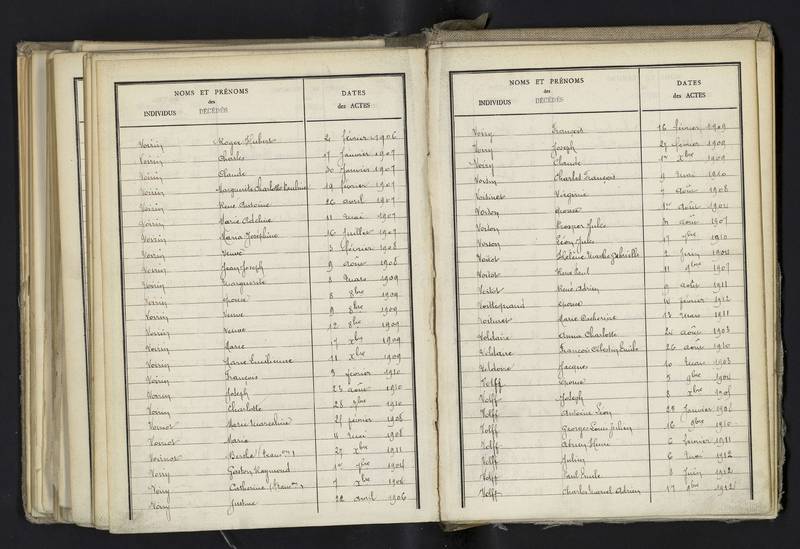 NOMS ET PRÉNOMS
des
DÉCÉDÉS
INDIVIDUS
DATES
des ACTES
Voirin Roger Hubert 2 février 1906
Voirin Charles 17 Janvier 1907
Voirin Claude 30 Janvier 1907
Voirin Marguerite Charlotte Pauline 19 février 1907
Voirin René Antoine 26 avril 1907
Voirin Marie Adeline 11 Mai 1907
Voirin Maria Joséphine 16 Juillet 1907
Voirin Veuve 3 février 1908
Voirin Jean Joseph 9 août 1908
Voirin Marguerite 8 Mars 1909
Voirin épouse 8 8bre 1909
Voirin Veuve 9 8bre 1909
Voirin Veuve 12 8bre 1909
Voirin Marie 17 Xbre 1909
Voirin Marie Emilienne 11 Xbre 1909
Voirin François 3 février 1910
Voirin Joseph 23 août 1910
Voirin Charlotte 28 9bre 1910
Voirnot Marie Marceline 21 février 1908
Voirnot Maria 11 Mai 1908
Voirnot Berthe 29 Xbre 1911
Voiry Gaston Raymond 1er 7bre 1904
Voiry Catherine 7 Xbre 1904
Voiry Justine 22 avril 1906
NOMS ET PRÉNOMS
des
DÉCÉDÉS
INDIVIDUS
DATES
des ACTES
Voiry François 16 février 1909
Voiry Joseph 27 février 1909
Voiry Claude 1er Xbre 1909
Voisin Charles François 9 Mai 1910
Virginie 7 août 1908
épouse 1er août 1902
Prosper Jules 31 août 1907
Léon Jules 17 1910
Voitot Hélène Marthe Gabrielle 2 Juin 1904
Voitot René Paul 11 9bre 1907
Voitot René Adrien 9 août 1911
épouse 10 février 1912
Marie Catherine 13 Mars 1911
Voldaire Anna Charlotte 24 août 1903
Voldaire François Célestin Emile 26 août 1910
Voldoire Jacques 10 Mars 1903
Volff épouse 5 9bre 1904
Volff Joseph 8 Xbre 1905
Volff Antoine Léon 23 Janvier 1906
Volff Georges Louis Julien 16 9bre 1910
Volff Adrien Henri 6 février 1911
Volff Julien 6 Mai 1912
Volff Paul Emile 3 Juin 1912
Volff Charles Marcel Adrien 17 1912